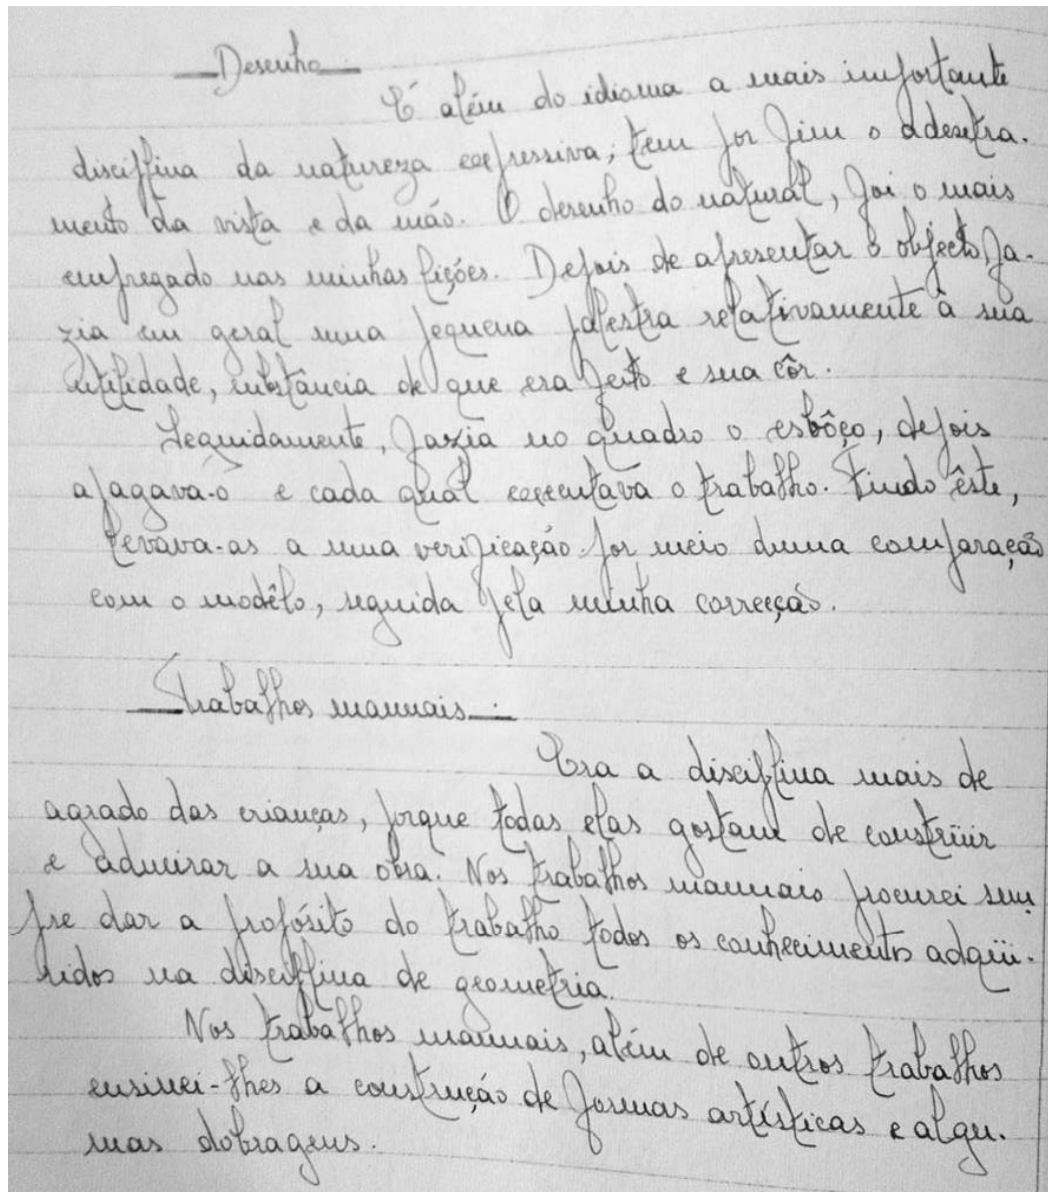 Desenho:
É além do idioma a mais importante
disciplina da natureza expressiva; tem por fim o adestra-
mento da vista e da mão. O desenho do natural, foi o mais
empregado nas minhas lições. Depois de apresentar o objecto fa-
zia em geral uma pequena palestra relativamente à sua
utilidade, substância de que era feito e sua côr.
Seguidamente, fazia no quadro o esbôço, depois
apagava-o e cada qual executava o trabalho. Findo êste,
levava-as a uma verificação por meio duma comparação
com o modêlo, seguida pela minha correcção.
Trabalhos manuais:
Era a disciplina mais de
agrado das crianças, porque todas elas gostam de construir
e admirar a sua obra. Nos trabalhos manuais procurei sem
pre dar a propósito do trabalho todos os conhecimentos adqüi-
ridos na disciplina de geometria.
Nos trabalhos manuais, além de outros trabalhos
ensinei-lhes a construção de formas artísticas e algu-
mas dobragens.